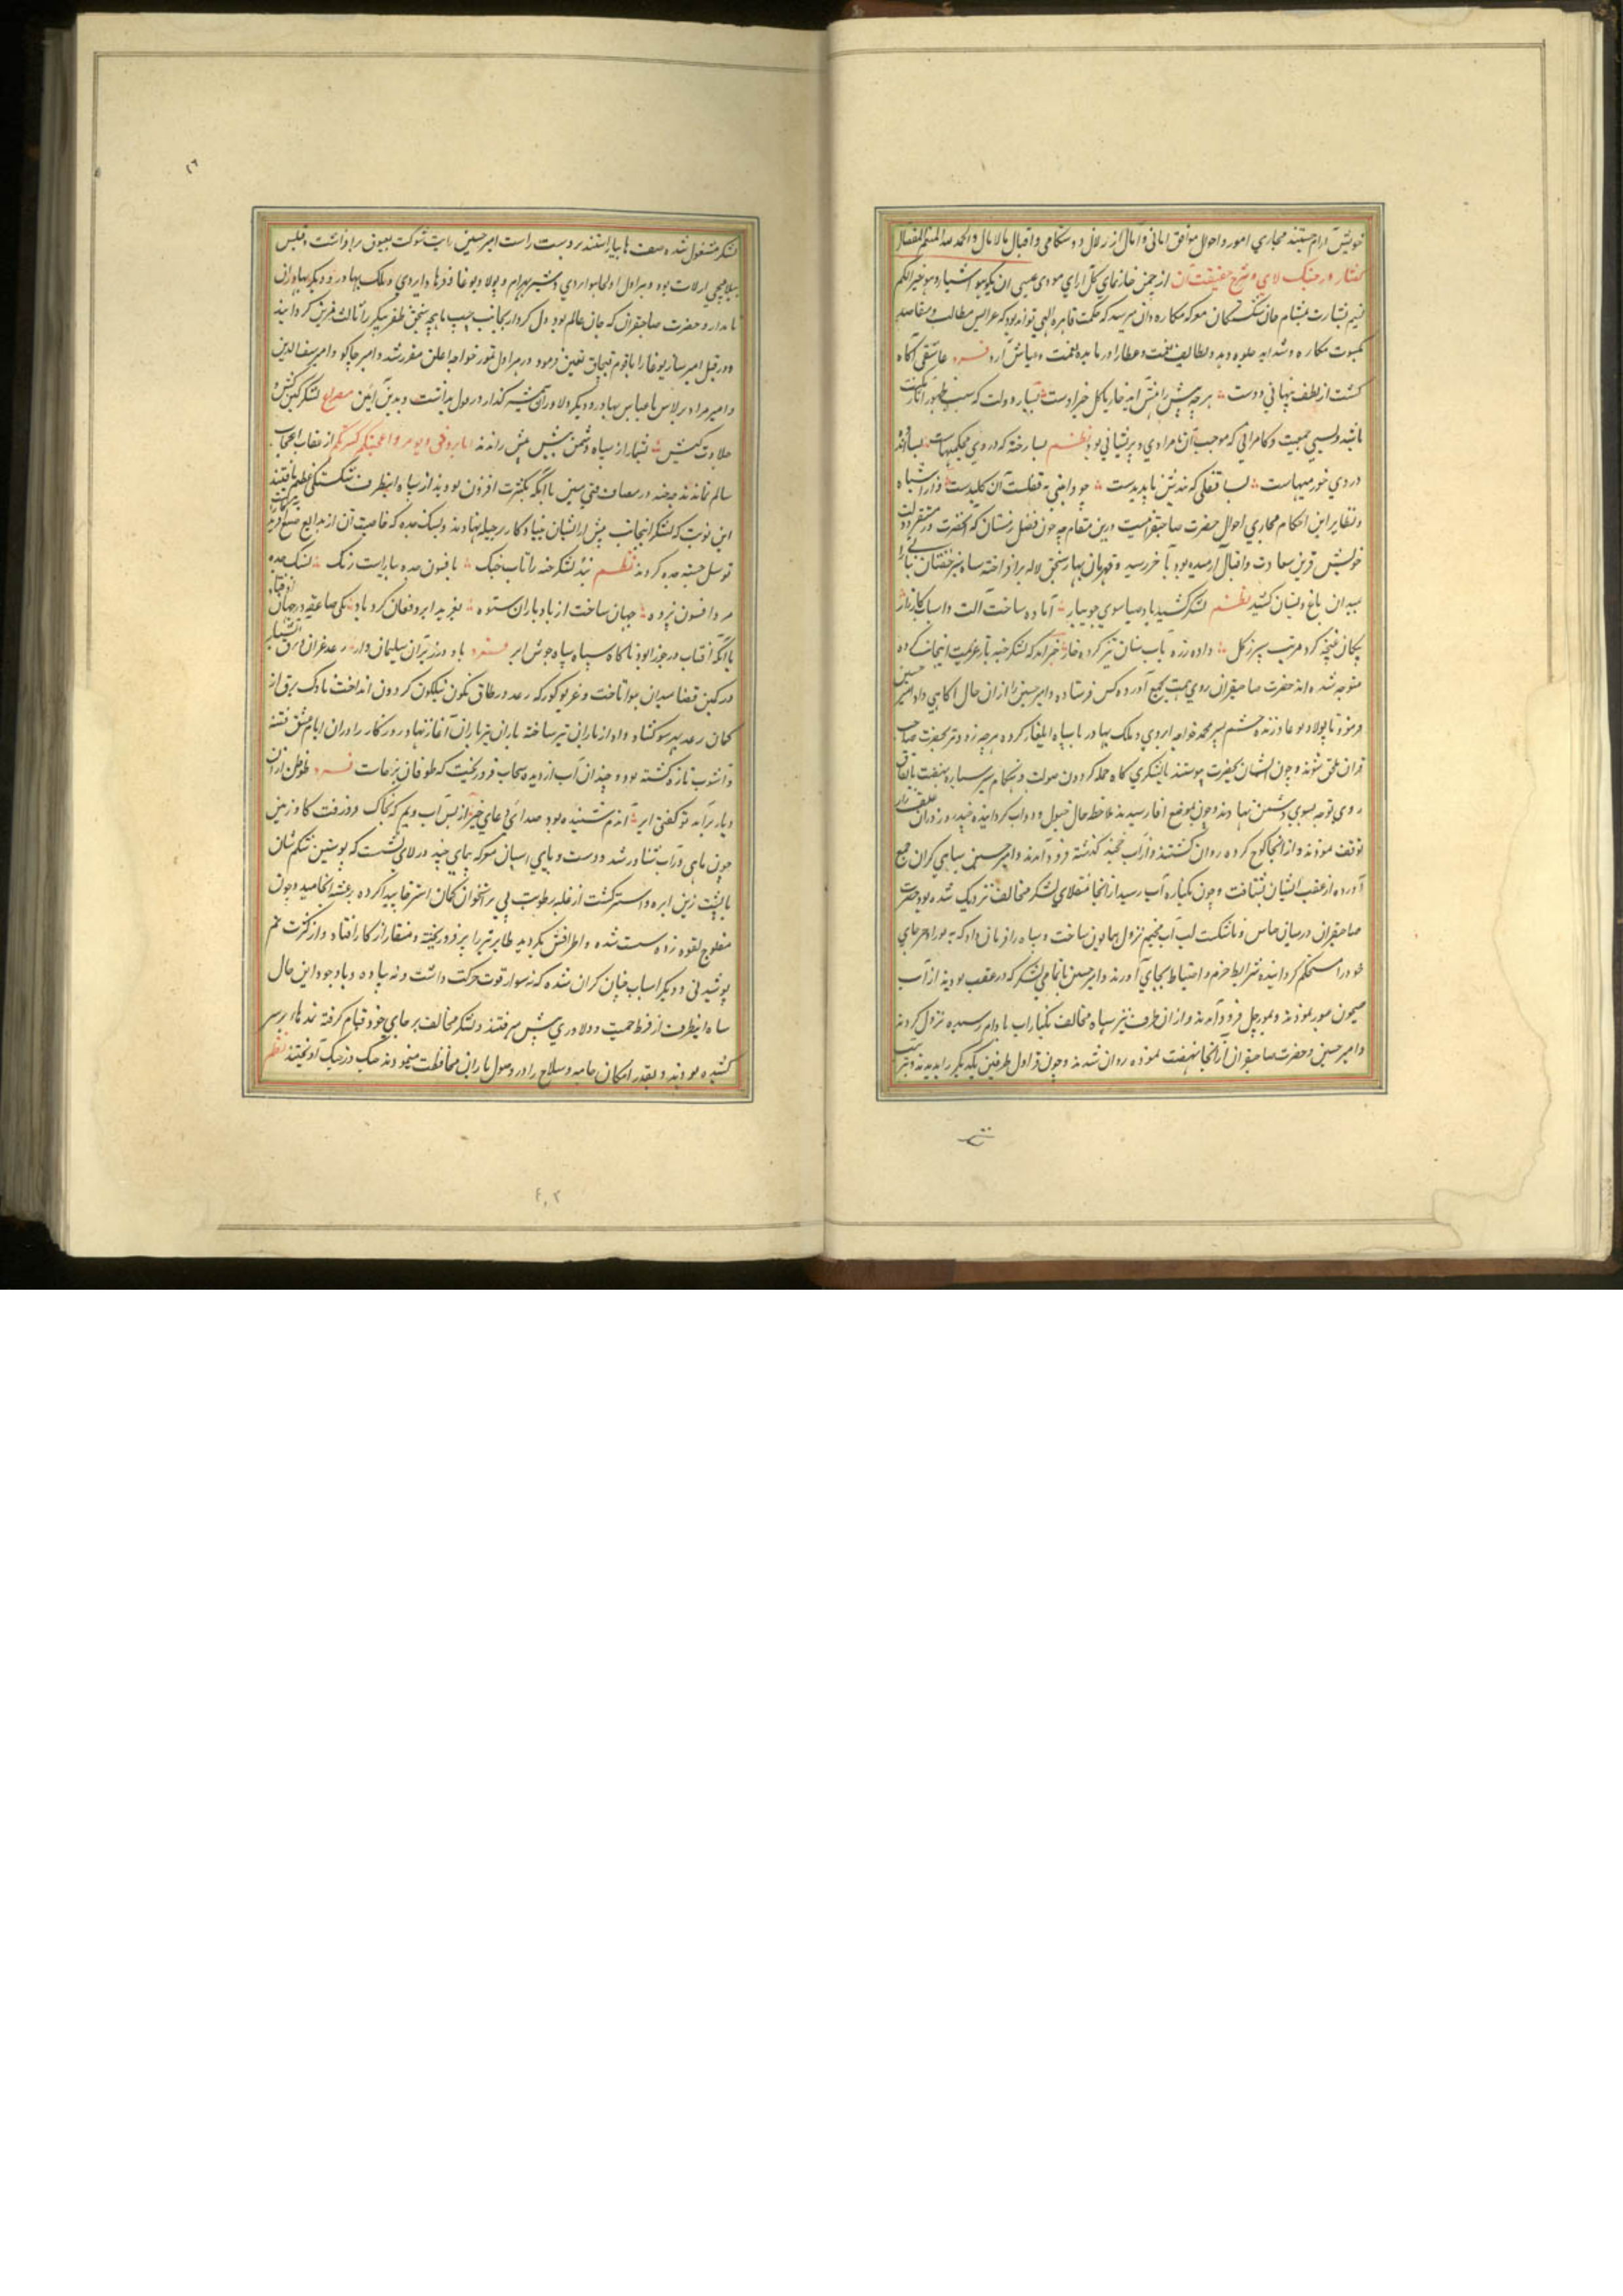 خویش آرام جستند مجاری امور و احوال موافق امانی و آمال از زلال دوستکامی و اقبال مالامال والحمد لله المنعم المفضال
گفتار در جنک لای و شرح حقیقت آن از چمن جانفزای کل ارای مودی عسی ان تکرهوا شیئا و هو خیر لکم
نسیم بشارت بمشام جان شکستکان معرکه مکاره و ان میرسد که حکمت قاهره الهی تواند بود که عرایس مطالب و مقاصد
بکسوت مکاره و شداید جلوه دهد و لطایف نعمت و عطا را در نقمت و عیاش آرد فرد عاشقی آگاه
کشت از لطف پنهانی دوست هرچه پیش آید خار یا کل خیر اوست بسیار دولت که سبب ظهور آن نکبت
باشد و بسی جمعیت و کامرانی که موجب آن نامرادی و پریشانی بود نظم بسا رخنه که در وی محکمیهاست بسا انده
در وی خرمیهاست بسا قفلی که بندش ناپدیدست چو وابینی نه قفلست آن کلیدست
و نظایر این احکام مجاری احوال حضرت صاحبقرانیست درین مقام چه چون فصل زمستان که آنحضرت در مستقر دولت
خویش قرین سعادت و اقبال آرمیده بود بآخر رسید و قهرمان بهار سنجق لاله برافراخته سپاه سبز خفتان
بمیدان باغ و بستان کشید نظم لشکر کشید باد صبا سوی جویبار آماده ساخت آلت و اسباب کارزار
پیکان غنچه کرد مرتب سپر ز کل داده زره باب سنان تیز کرده خار خبر آمد که لشکر جته باز عزیمت اینجانب کرده
متوجه شده‌اند حضرت صاحبقران روی همت بجمع آورده کس فرستاده و امیر حسین را از ان حال آکاهی داد امیر حسین
فرمود تا پولاد بوغا و زنده حشم پسر محمد خواجه اپردی و ملک بهادر با سپاه ایلغار کرده هرچه زودتر بحضرت صاحب
قران ملحق شوند و چون ایشان بحضرت پیوستند
روی توجه بسوی دشمن نهادند و چون بموضع اقار رسیدند ملاحظه حال خیول و دواب کردانیده چند روز در ان علف زار
توقف نمودند و از انجا کوچ کرده روان کشتند و از آب خجند کذشته فرود آمدند و امیر حسین سپاهی کران جمع
آورده از عقب ایشان بشتافت و چون بکناره آب رسید از انجا منقلای لشکر مخالف نزدیک شده بود حضرت
صاحبقران درمیان چناس و تاشکنت لب آب مخیم نزول همایون ساخت و سپاه را فرمان داد که هر جای
خود را مستحکم کردانیده شرایط حزم و احتیاط بجای آورند و امیر حسین با تمامی لشکر که در عقب بودند از آب
سیحون عبور نمودند و مورچل فرود آمدند و از ان طرف نیز سپاه مخالف بکنار آب بادام رسیده نزول کردند
و امیر حسین و حضرت صاحبقران از آنجا نهضت نموده روان شدند و چون قراول طرفین یکدیکر را بدیدند
لشکر مشغول شده صفها بیاراستند در دست راست امیر حسین رایت شوکت بعیوق برافراشت و قنبلش
تیلانچی ارلات بود و هراول اولجایتو اپردی و شیر بهرام و پولاد بوغا و فرهاد اپردی و ملک بهادر و دیکر بهادران
نامدار و حضرت صاحبقران که جان عالم بود دل کردار بجانب چپ ماهچه سنجق ظفر پیکر را ثالث قمرین کردانید
و در قنبل امیر ساربوغا را با قوم قبچاق تعیین فرمود و در هراول تمور خواجه اغلن مقرر شد و امیر جاکو و امیر سیف الدین
و امیر مراد برلاس با عباس بهادر و دیکر دلاوران شمشیرکذار در قول بداشت و بدین آیین مصراع لشکر کین‌کش و
جلادت کیش بشمار از سپاه دشمن بیش پیش راندند اما بر وفق و یوم حنین اذ اعجبتکم کثرتکم از عقاب اعجاب
سالم نماندند هرچند در مصاف فتی معین با آنکه بکثرت افزون بودند از سپاه اینطرف شکستکی عظیم یافتند
این نوبت که لشکر اینجانب بیش از ایشان بود کار بر حیله نهادند و بسنک جده که خاصیت آن از بدایع صنع آفریدکار
توسل جسته جده کردند نظم نبد لشکر جته را تاب جنک بافسون جده یار است رنک بسنک جده
مرد افسون پژوه جهان ساخت از باد و باران ستوه بغرید ابر و فغان کرد باد یکی صاعقه در جهان اوفتاد
با آنکه آفتاب در جوزا بود ناکاه سپاه سیاه جوش ابر فرد باد در زیر آن سلیمان وار رعد غران و برق آتشبار
در کمین قضا بمیدان هوا تاخت و غریو کورکه رعد در طاق نیلکون کردون انداخت ناوک برق از
کمان رعد بهر سو کشاد و داد از باران تیر ساخته باران تیرباران آغاز نهاد روزکار را دران ایام عشق فتنه
و آشوب تازه کشته بود و چندان آب از دیده سحاب فرو ریخت که طوفان برخاست فرد
دیار برآمد تو کفتی ابر اندم شنیده بود صدای دعای خیر از بس آب و نم که بخاک فرو رفت کاو زمین
چون ماهی در آب شناور شد و دست و پای اسبان معرکه پیمای چنبه در لای نشست که پوستین شکم شان
با پشت زین ابره و استر کشت از غلبه رطوبت پی بر استخوان کمان استرخا پیدا کرده برعشه انجامید و چون
مفلوج لقوه زده سست شده و اطرافش بکردید طایر تیر را پر فرو ریخته و منقار از کار افتاد و از کثرت نم
پوشیدنی و دیکر اسباب چنان کران شده که نه سوار قوت حرکت داشت و نه پیاده و با وجود این حال
سپاه اینطرف از فرط حمیت و دلاوری پیش میرفتند و لشکر مخالف بر جای خود قیام کرفته نمدها بر سر
کشیده بودند و بقدر امکان جامه و سلاح را در وصول باران محافظت مینمودند جنک درجنک آویختند نظم